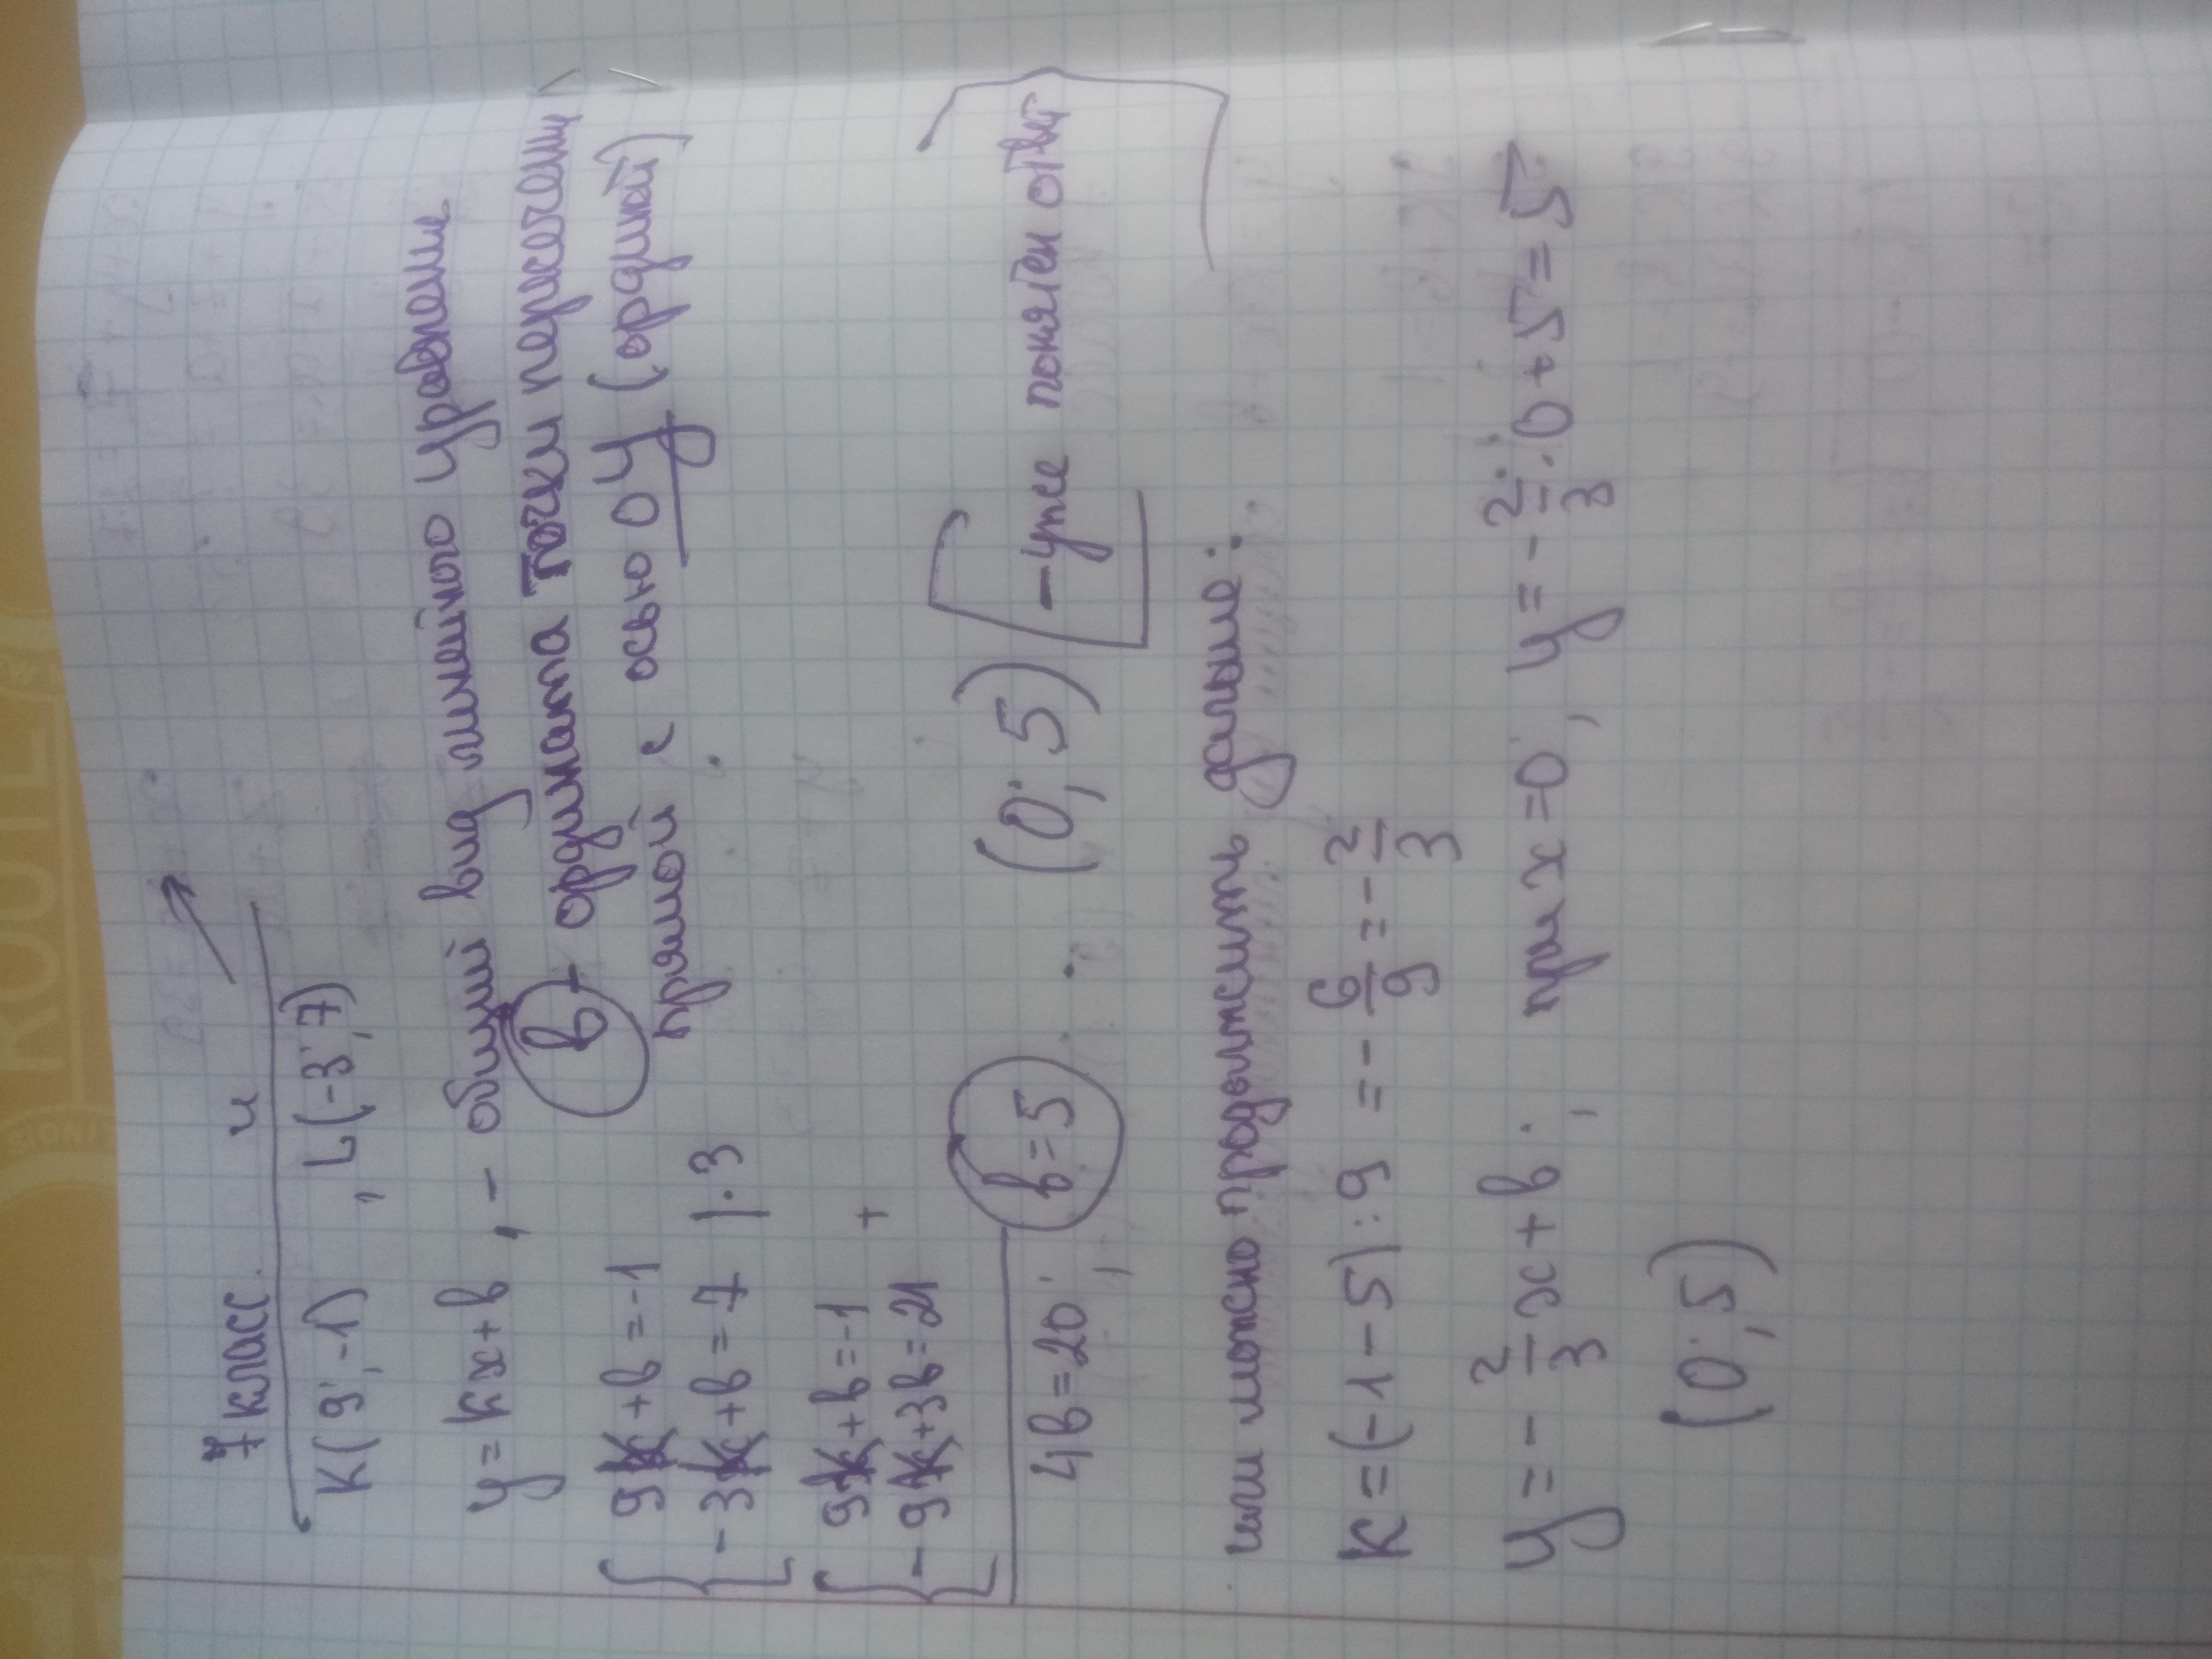 7 класс. и
K(9; -1) , L(-3; 7)
y = kx + b , - общий вид линейного уравнения
b - ордината точки пересечения
прямой с осью OY (ординат)
{ 9k + b = -1
-3k + b = 7 | · 3
{ 9k + b = -1
-9k + 3b = 21 +
4b = 20 , b = 5 (0; 5) - уже понятен ответ
или можно продолжить дальше:
k = (-1 - 5) : 9 = - 6/9 = - 2/3
y = - 2/3 x + b ; при x = 0 , y = - 2/3 · 0 + 5 = 5
(0; 5)